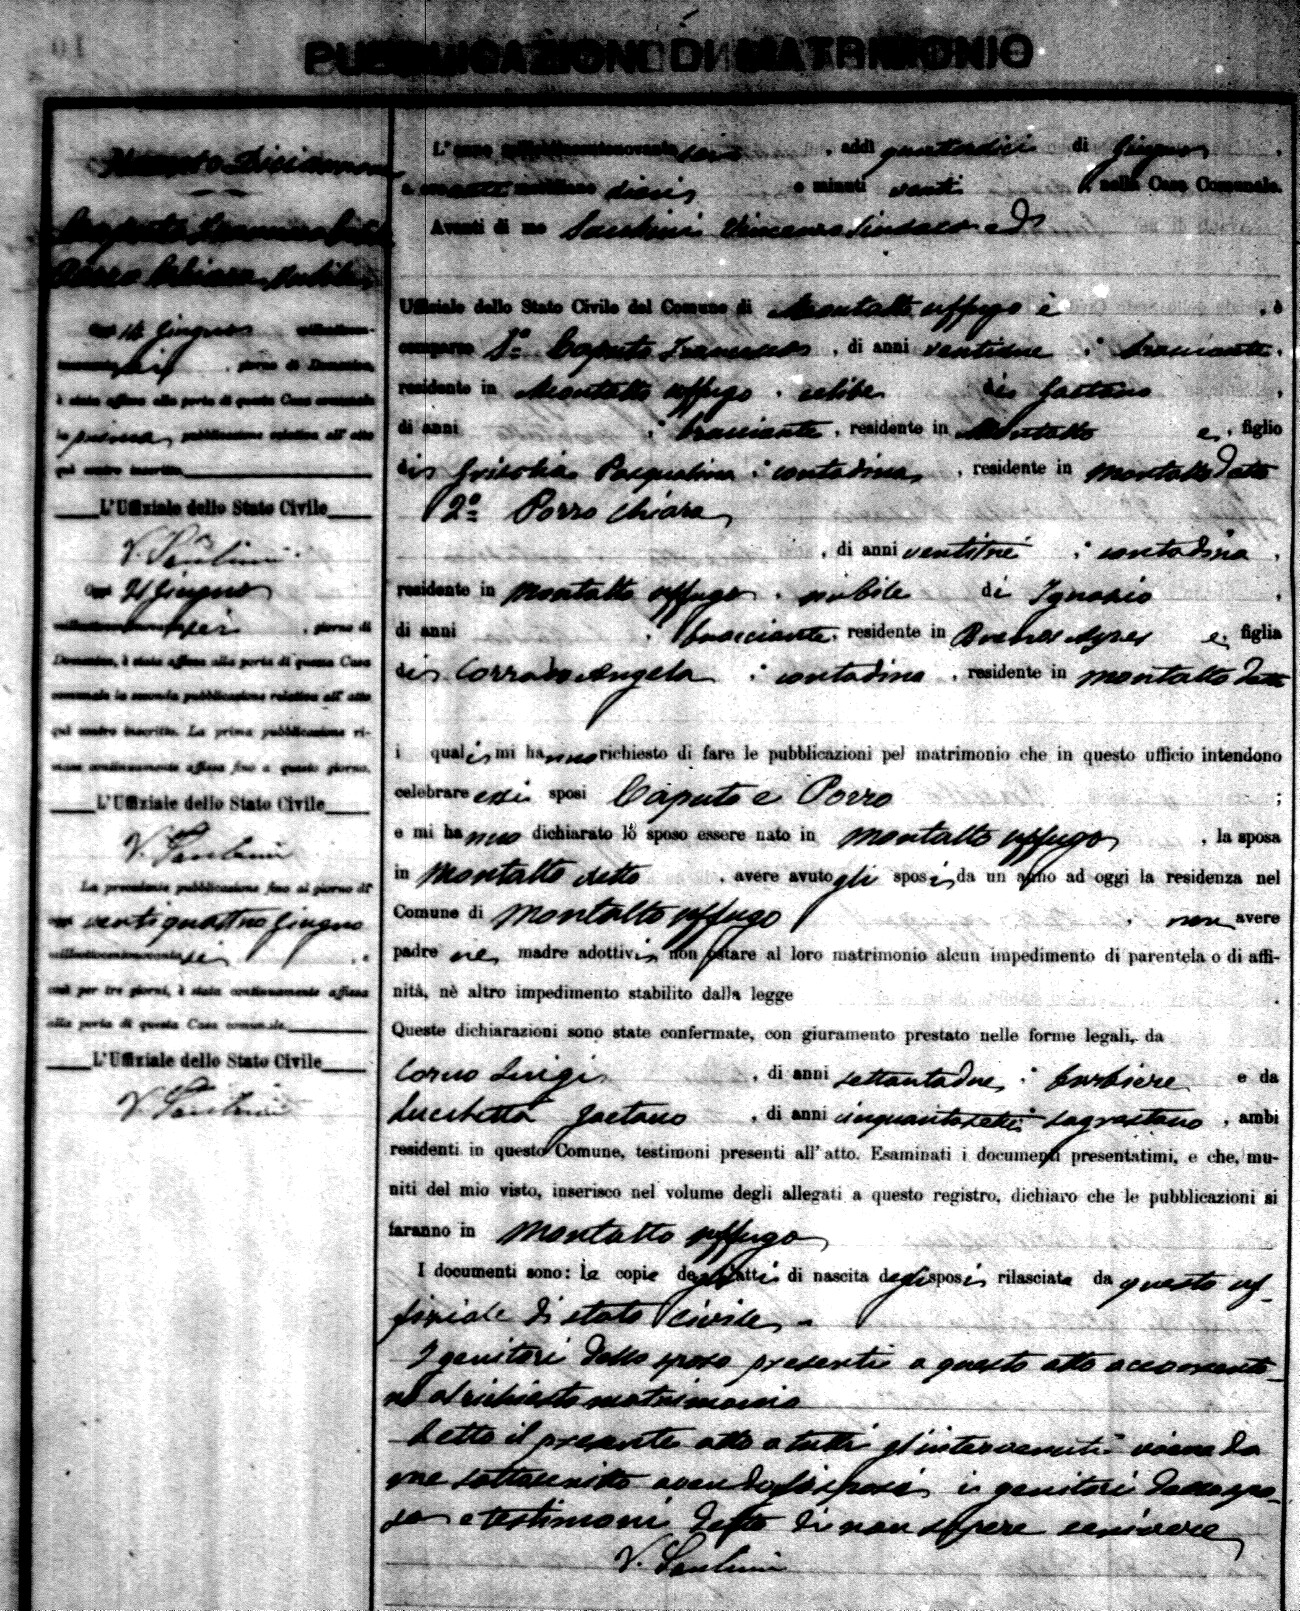 PUBBLICAZIONI DI MATRIMONIO
Numero Diciannove
Caputo Francesco celibe
Porro Chiara nubile
Oggi 14 Giugno milleottocento-
novantasei, giorno di Domenica,
è stata affissa alla porta di questa Casa comunale
la prima pubblicazione relativa all' atto
qui contro inscritto
L'Uffiziale dello Stato Civile
Oggi 21 Giugno
milleottocentonovantasei, giorno di
Domenica, è stata affissa alla porta di questa Casa
comunale la seconda pubblicazione relativa all' atto
qui contro inscritto. La prima pubblicazione ri-
mase continuamente affissa fino a questo giorno.
L'Uffiziale dello Stato Civile
La precedente pubblicazione fino al giorno di
oggi ventiquattro Giugno
milleottocentonovantasei, e
così per tre giorni, è stata continuamente affissa
alla porta di questa Casa comunale.
L'Uffiziale dello Stato Civile
L' anno milleottocentonovantasei, addì quattordici di Giugno,
a ore meridiane dieci e minuti venti, nella Casa Comunale.
Avanti di me Vincenzo Sindaco ed
Uffiziale dello Stato Civile del Comune di Montalto uffugo è, è
comparso 1° Caputo Francesco, di anni ventidue, bracciante,
residente in Montalto uffugo, celibe di Gaetano,
di anni , bracciante, residente in Montalto e, figlio
di Grisolia Pasqualina, contadina, residente in Montalto detto
2° Porro Chiara
, di anni ventitré, contadina,
residente in Montalto uffugo, nubile di Ignazio,
di anni , bracciante, residente in Buenos Ayres e, figlia
di Corrado Angela, contadina, residente in Montalto detto
i quali mi hanno richiesto di fare le pubblicazioni pel matrimonio che in questo ufficio intendono
celebrare essi sposi Caputo e Porro ;
e mi hanno dichiarato lo sposo essere nato in Montalto uffugo, la sposa
in Montalto detto, avere avuto gli sposi da un anno ad oggi la residenza nel
Comune di Montalto uffugo, non avere
padre nè madre adottivi, non ostare al loro matrimonio alcun impedimento di parentela o di affi-
nità, nè altro impedimento stabilito dalla legge.
Queste dichiarazioni sono state confermate, con giuramento prestato nelle forme legali, da
Luigi, di anni settantadue, barbiere e da
Lucchetta Gaetano, di anni cinquantasette sagrestano, ambi
residenti in questo Comune, testimoni presenti all' atto. Esaminati i documenti presentatimi, e che, mu-
niti del mio visto, inserisco nel volume degli allegati a questo registro, dichiaro che le pubblicazioni si
faranno in Montalto uffugo
I documenti sono: le copie degli atti di nascita degli sposi rilasciate da questo uf-
fiziale di stato civile.
I genitori dello sposo presenti a questo atto acconsento-
no al richiesto matrimonio
Letto il presente atto a tutti gl'intervenuti viene da
me sottoscritto avendo gli sposi, i genitori dello spo-
so e testimoni detto di non sapere scrivere